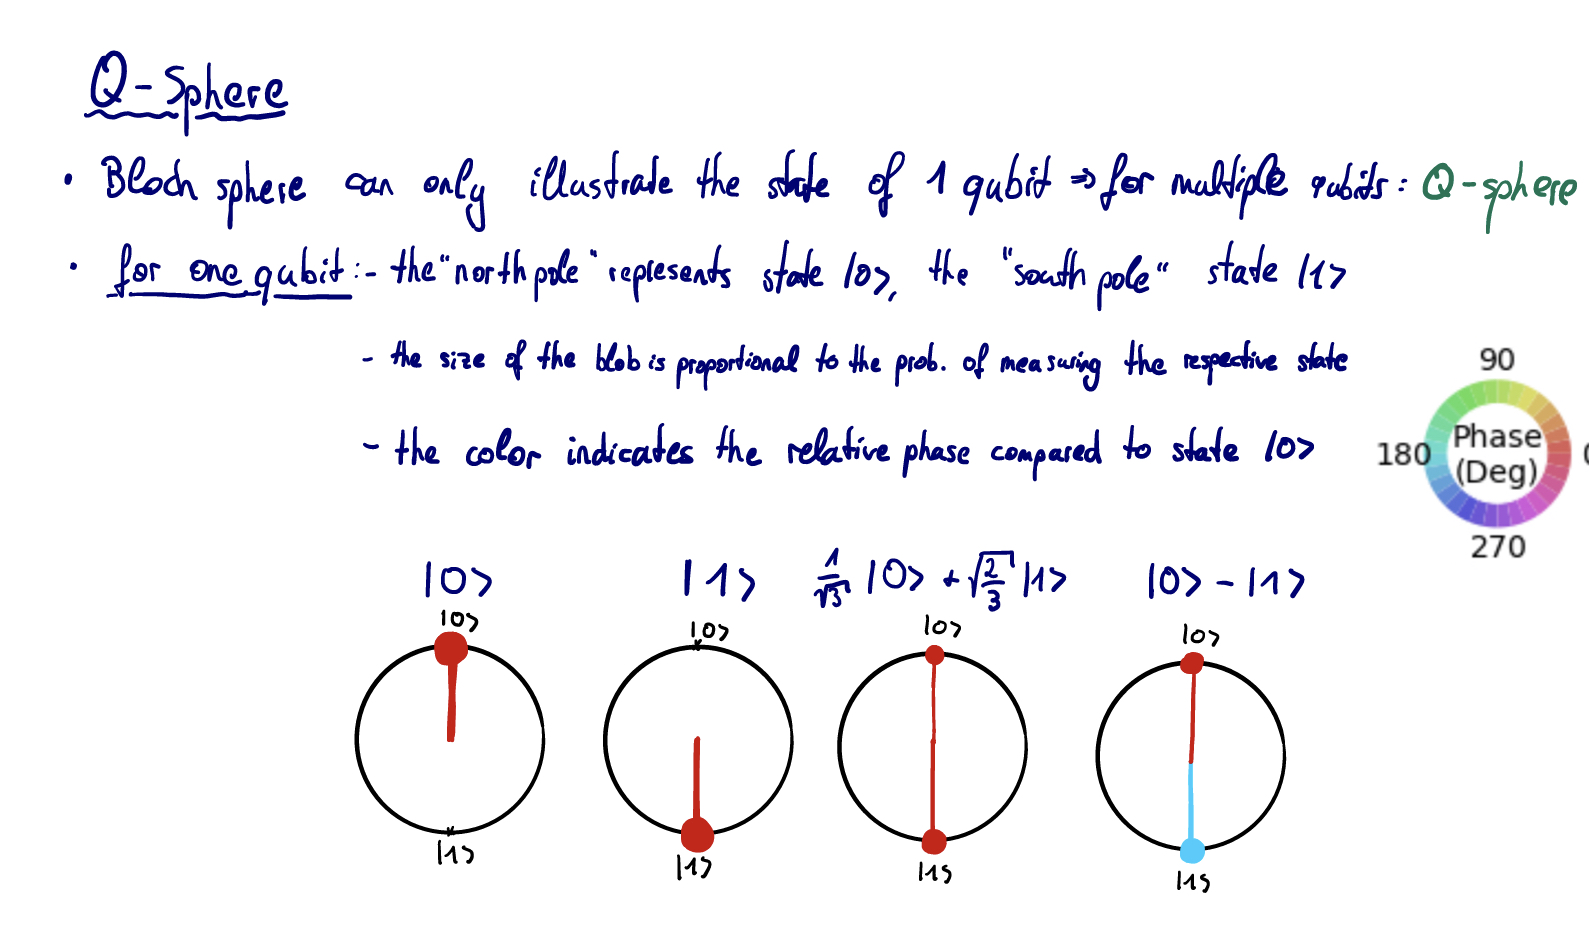 Q-Sphere
• Bloch sphere can only illustrate the state of 1 qubit ⇒ for multiple qubits: Q-sphere
• for one qubit: - the "north pole" represents state |0>, the "south pole" state |1>
- the size of the blob is proportional to the prob. of measuring the respective state
- the color indicates the relative phase compared to state |0>
90
Phase
(Deg)
180
0
270
|0> |1> 1/√3 |0> + √2/3 |1> |0> - |1>
|0> |0> |0> |0>
|1> |1> |1> |1>